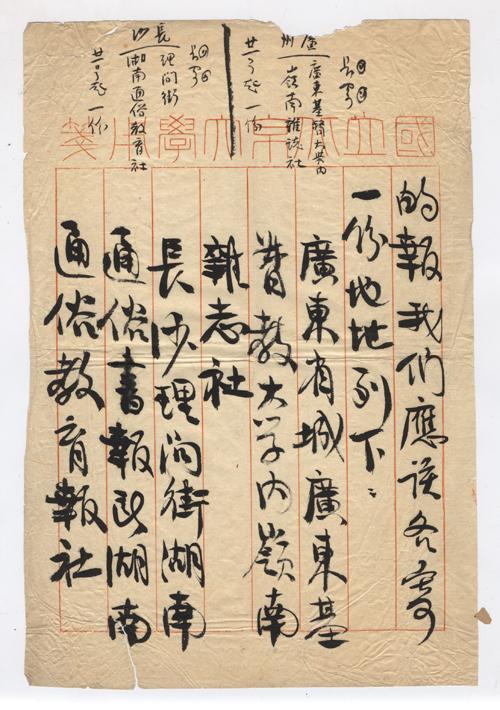 廣州
廣東基督大學内
嶺南雜誌社
一份
長沙
理问街
湖南通俗教育社
一份
國立北京大學用箋
的報我们應該各寄
一份地址列下
廣東省城廣東基
督教大学内嶺南
雜志社
長沙理问街湖南
通俗書報及湖南
通俗教育報社